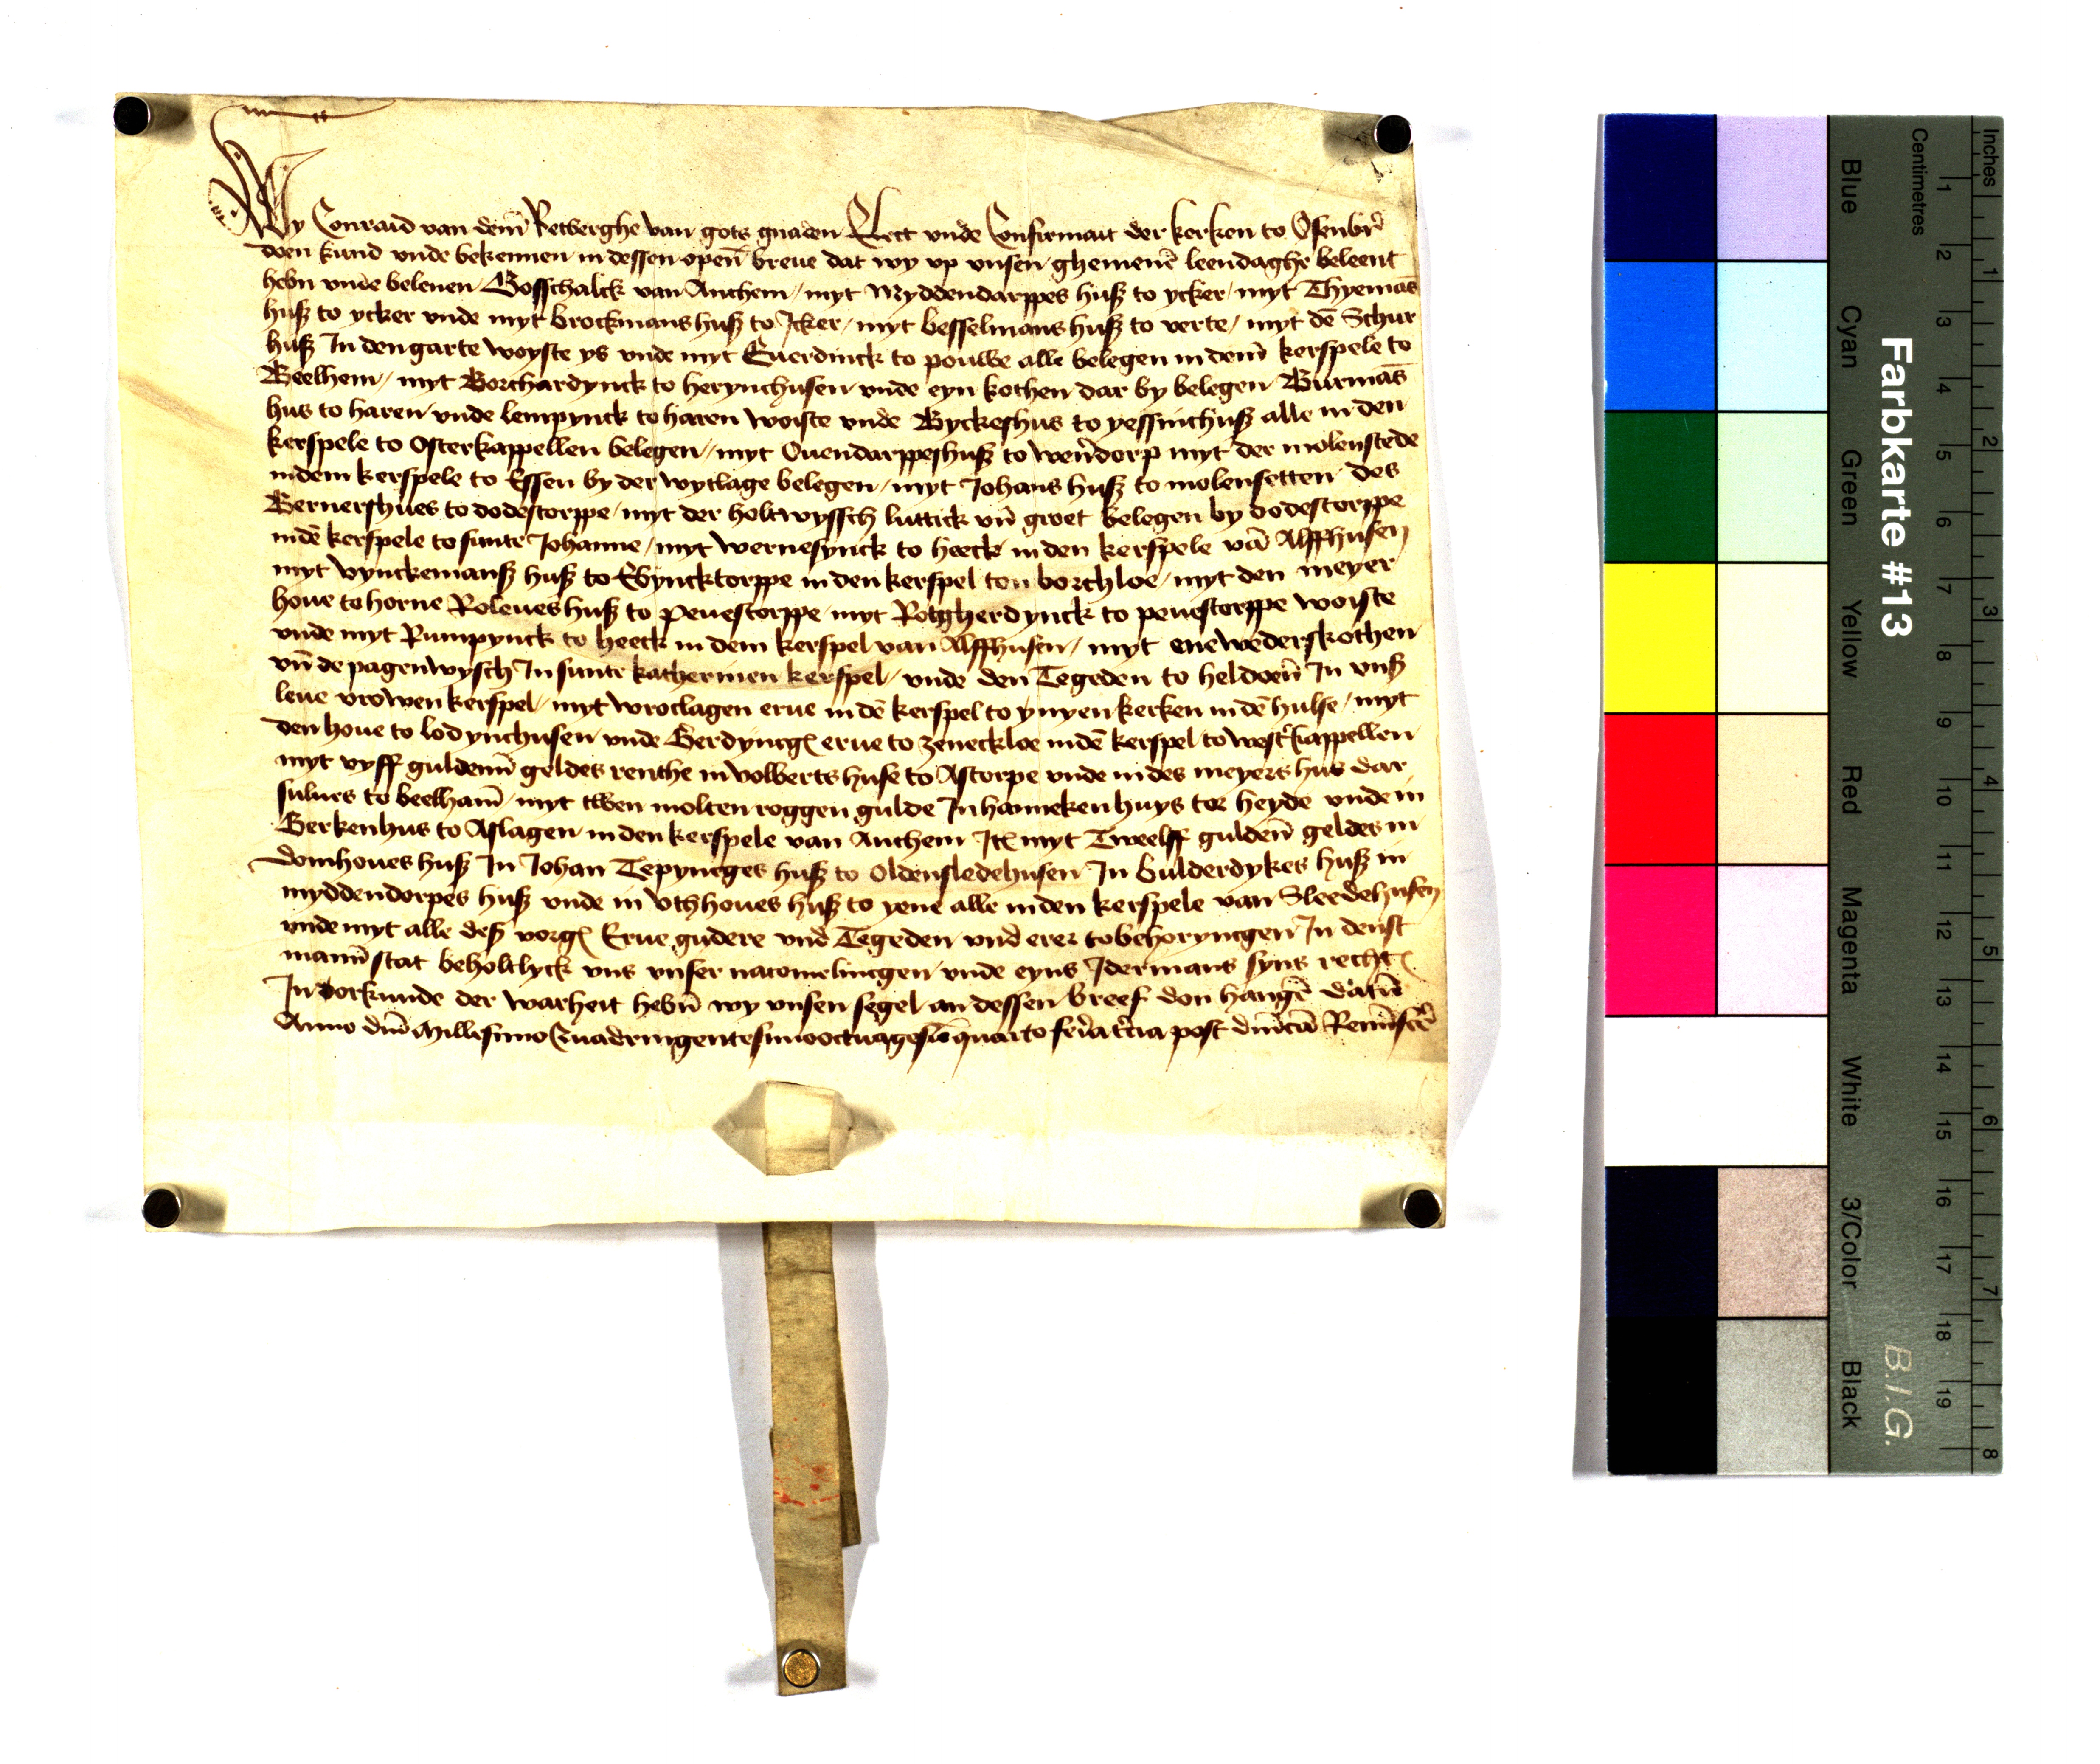 Wy Conraid van dem̄ Retberghe van gots gnaden Elect vnde Confirmait der kerken to Osenbr̄
doen kund vnde bekennen in dessen openn̄ breue dat wy vp vnsen ghemenē leendaghe beleent
hebn vnde belenen Gosschalck van Anchem / myt Myddendarppes huß to ycker / myt Thyemās
huß to ycker vnde myt brockmans huß to Jcker / myt besselmans huß to verte / myt dē Schur
huß In den garte woyste ys vnde myt Euerdinck to pouwe alle belegen in dem̄ kerspele to
Beelhem / myt Borchardynck to herynchusen vnde eyn kothen dar by belegen Burmās
hus to haren vnde lempynck to haren woiste vnde Byckeshus to yessinchuß alle in den
kerspele to Osterkappellen belegen / myt Ouendarppeshuß to wen̄dorp myt der molenstede
indem kerspele to Essen by der wytlage belegen / myt Johans huß to molensetten des
Bernershues to dodestorppe / myt der holtwyssch luttick vn̄ groet belegen by dodestorppe
indē kerspele to sunte Johanne / myt wernesynck to heeck in den kerspele vā Alffhusen
myt vynckemanß huß to Ebyncktorppe in den kerspel ton borchloe / myt den meyer
houe to horne Roleues huß to peuestorppe / myt Rotgherdynck to peuestorppe woiste
vnde myt Rumpynck to heeck in dem kerspel van Alffhusen / myt ene wederskothen
vn̄ de pagenwysch In sunte katherinen kerspel / vnde den Tegeden to heldoen̄ In vnß
leue vrowen kerspel / myt wroclagen erue in dē kerspel to ynyen kerken in dē hulse / myt
den houe to lodynchusen vnde Gerdyncg erue to zeneckloe indē kerspel to westkappellen
myt vyff guldenn̄ geldes renthe in volberts huse to Astorpe vnde in des meyers hus dar
sulues to beelham̄ / myt twen molten roggen gulde In hannekenhuys tor heyde vnde in
Gerkenhus to Aslagen in den kerspele van Anchem Jt myt Tweelff guldenn̄ geldes in
domhoues huß In Johan Tepyncges huß to Oldensledehusen In bulderdykes huß in
myddendorpes huß vnde in Vthhoues huß to yene alle in den kerspele van Sleedehusen
vnde myt alle deß vorg Erue gudere vnd Tegeden vnd erer tobehoryncgen In denst
man̄ stat beholtlyck vns vnser nacomelincgen vnde eyns Jdermans syns recht
In orkunde der warheit hebn̄ wy vnsen segel an dessen breef don hangē datū
Anno dn̄i Millesimo Quadringentesimo octuagesīo quarto feria tercia post dn̄icā Remīscē
Farbkarte #13
B.I.G.
Blue Cyan Green Yellow Red Magenta White 3/Color Black
Centimetres 1 2 3 4 5 6 7 8 9 10 11 12 13 14 15 16 17 18 19
Inches 1 2 3 4 5 6 7 8